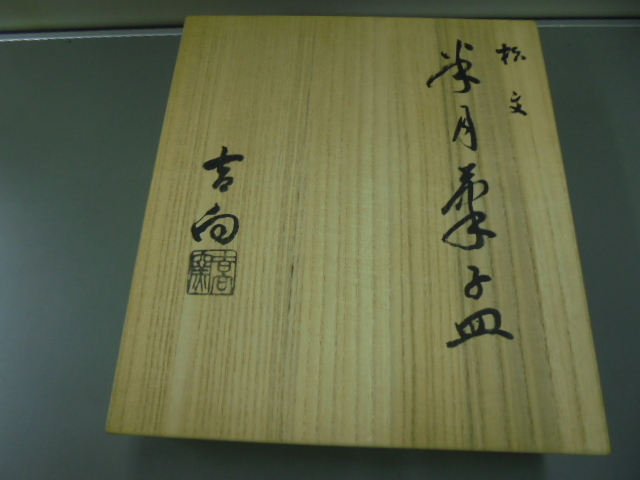 松文
半月菓子皿
吉向
吉向窯